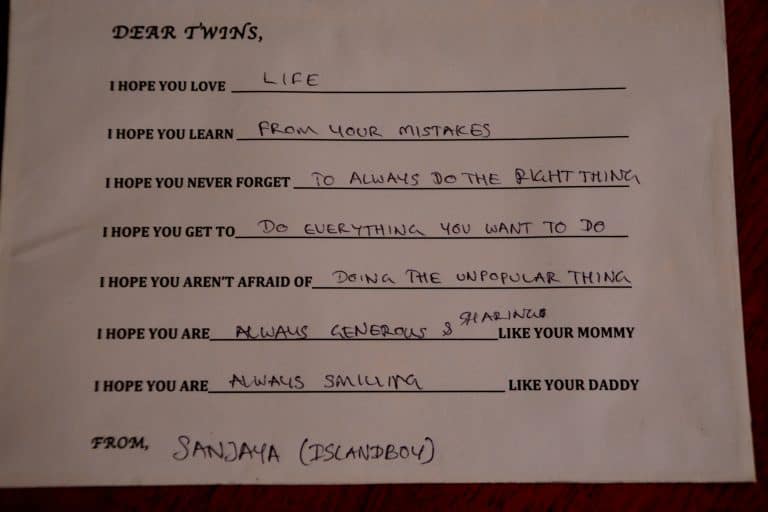 DEAR TWINS,
I HOPE YOU LOVE LIFE
I HOPE YOU LEARN FROM YOUR MISTAKES
I HOPE YOU NEVER FORGET TO ALWAYS DO THE RIGHT THING
I HOPE YOU GET TO DO EVERYTHING YOU WANT TO DO
I HOPE YOU AREN'T AFRAID OF DOING THE UNPOPULAR THING
I HOPE YOU ARE ALWAYS GENEROUS & SHARING LIKE YOUR MOMMY
I HOPE YOU ARE ALWAYS SMILING LIKE YOUR DADDY
FROM, SANJAYA (ISLANDBOY)